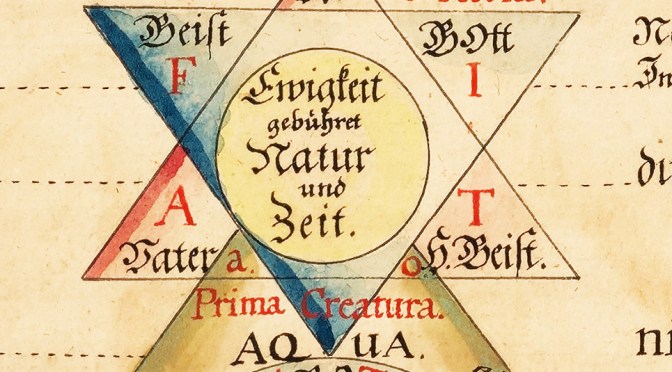 Geist
GOtt
F
I
Ewigkeit
gebühret
Natur
und
Zeit.
A
T
Vater
a.
o
H. Geist.
Prima Creatura.
AQUA.